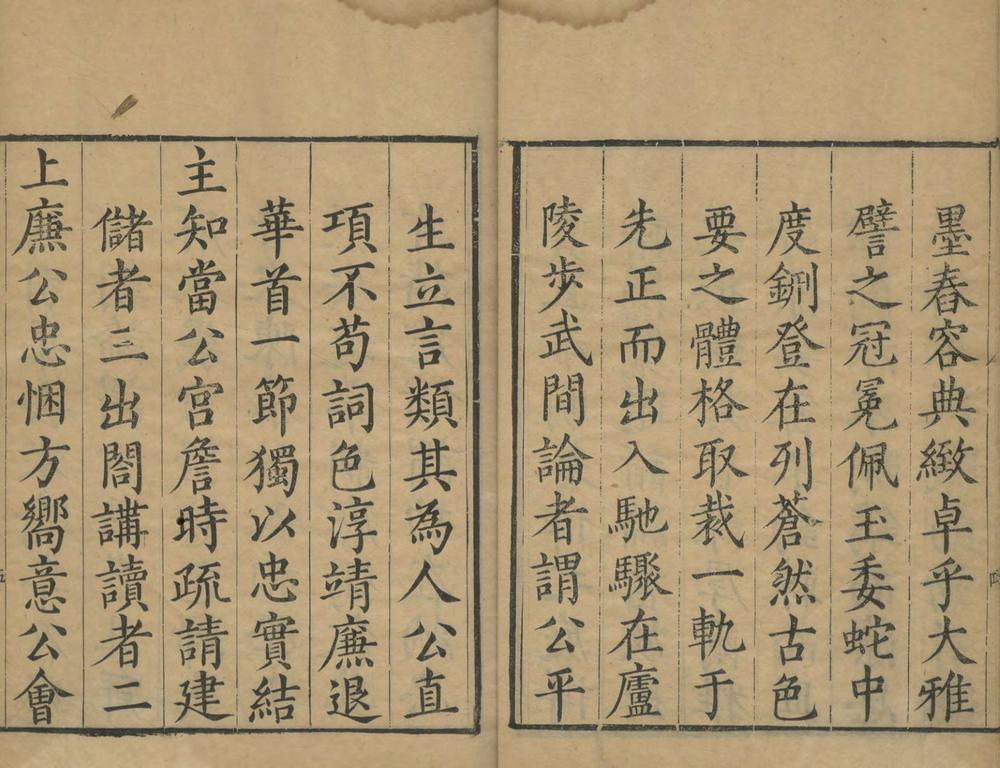 墨舂容典緻卓乎大雅
譬之冠冕佩玉委蛇中
度鉶登在列蒼然古色
要之體格取裁一軌于
先正而出入馳驟在廬
陵步武間論者謂公平
生立言類其為人公直
項不苟詞色淳靖廉退
華首一節獨以忠實結
主知當公宮詹時疏請建
儲者三出閤講讀者二
上廉公忠悃方嚮意公會